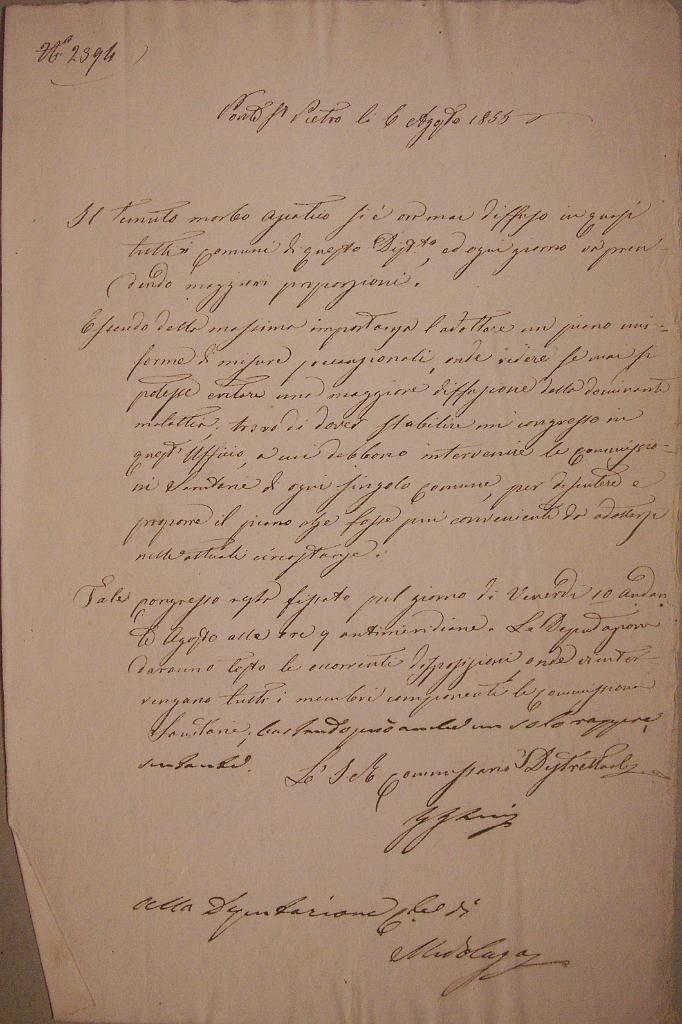 N.° 2394
Ponte S. Pietro li 6 Agosto 1855
Il temuto morbo asiatico si è oramai diffuso in quasi
tutti i Comuni di questo Dist.to, ed ogni giorno va pren-
dendo maggiori proporzioni.
Essendo della massima importanza l'adottare un piano uni-
forme di misure precauzionali, onde vedere se mai si
potesse evitare una maggiore diffusione della dominante
malattia, trovo di dover stabilire un congresso in
quest'Ufficio, a cui debbono intervenire le Commissio-
ni Sanitarie di ogni singolo Comune, per discutere e
proporre il piano che fosse più conveniente da adottarsi
nelle attuali circostanze.
Tale congresso resta fissato pel giorno di Venerdì 10 andan
te Agosto alle ore 9 antimeridiane. Le Deputazioni
daranno tosto le occorrenti disposizioni onde v'inter-
vengano tutti i membri componenti le Commissioni
Sanitarie, bastando però anche un solo rappre
sentante.
L'I. R. Commissario Distrettuale
Alla Deputazione C.le di
Medolago